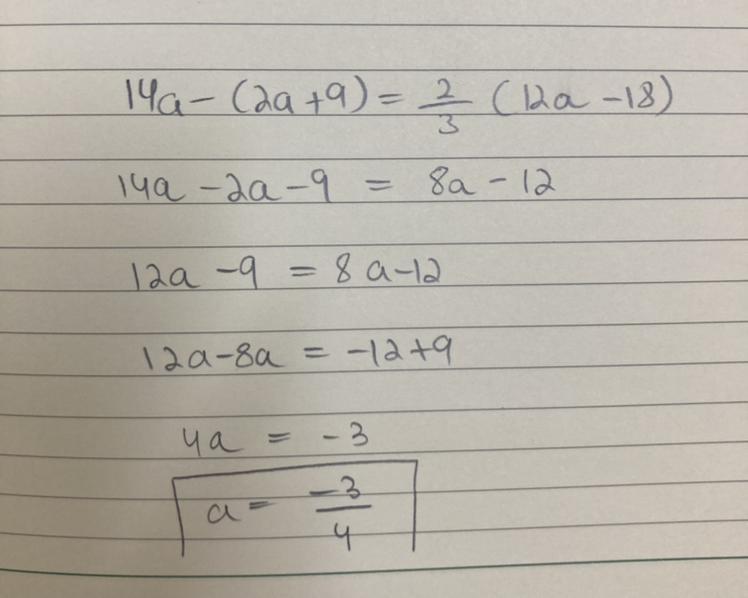 14a - (2a + 9) = 2/3 (12a - 18)
14a - 2a - 9 = 8a - 12
12a - 9 = 8a - 12
12a - 8a = -12 + 9
4a = -3
a = -3/4